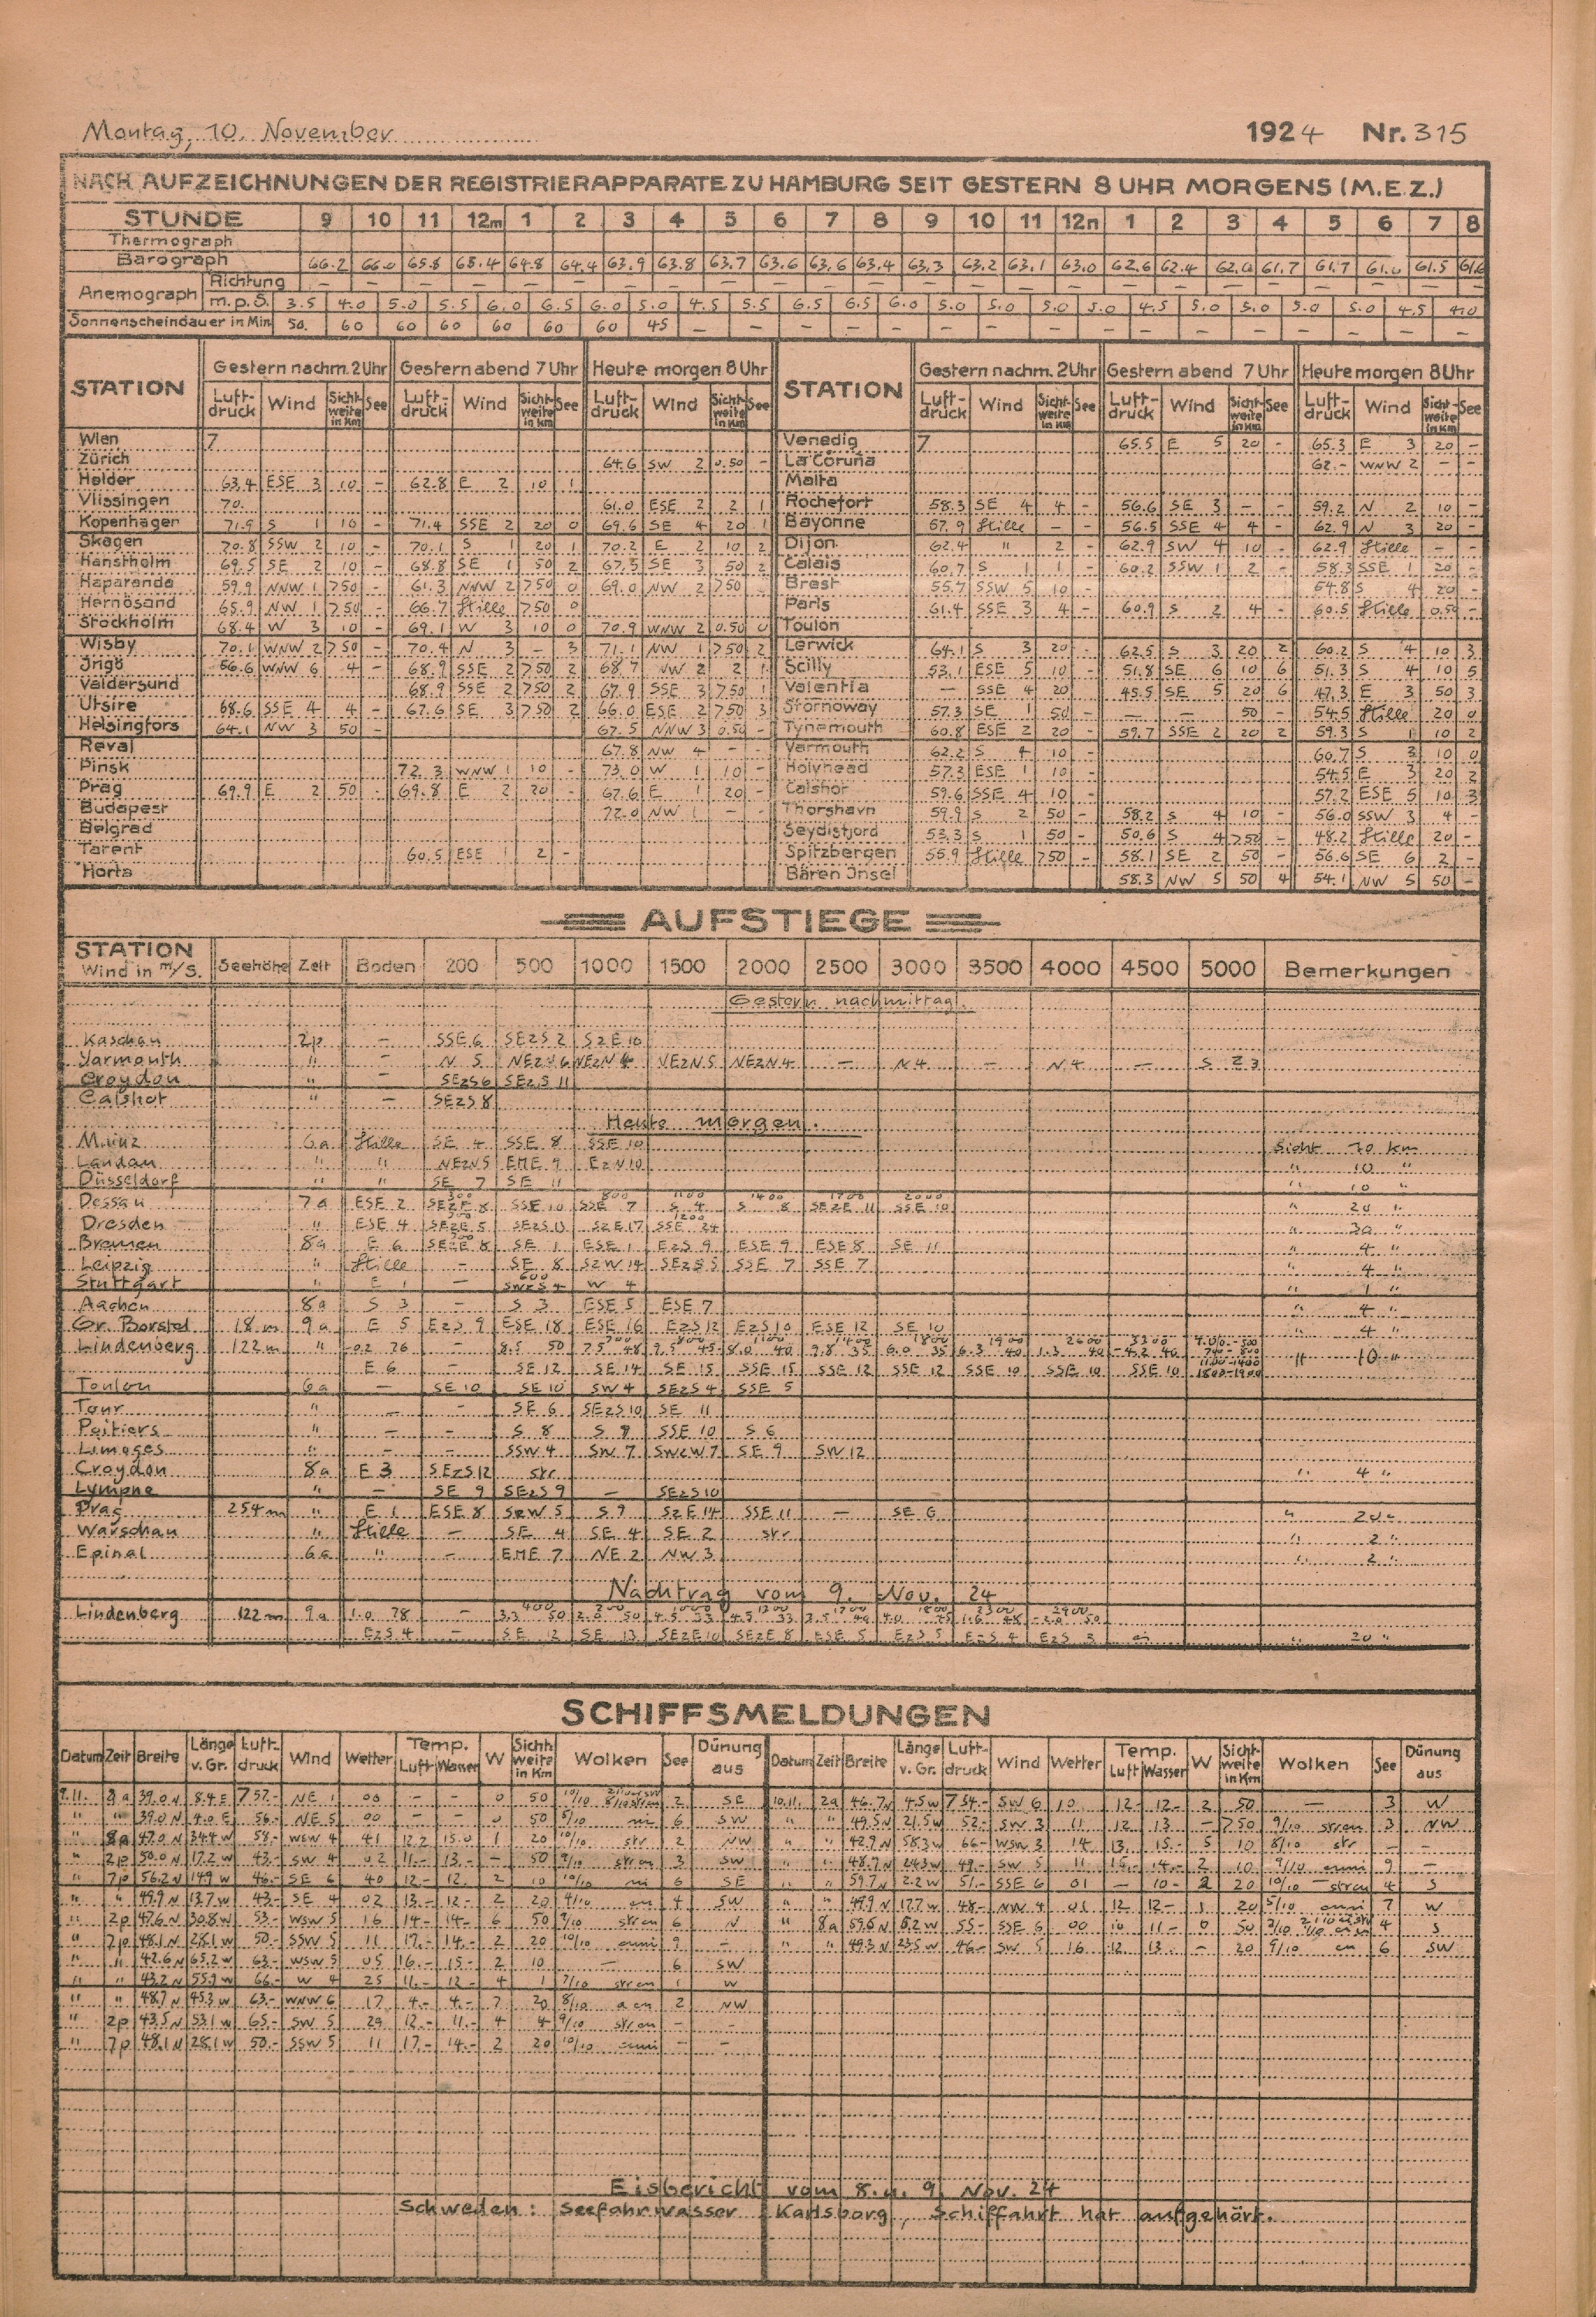 Montag, 10. November 1924 Nr. 315
NACH AUFZEICHNUNGEN DER REGISTRIERAPPARATE ZU HAMBURG SEIT GESTERN 8 UHR MORGENS (M.E.Z.)
STUNDE 9 10 11 12m 1 2 3 4 5 6 7 8 9 10 11 12n 1 2 3 4 5 6 7 8
Thermograph
Barograph 66.2 66.0 65.8 65.4 64.8 64.4 63.9 63.8 63.7 63.6 63.6 63.4 63.3 63.2 63.1 63.0 62.6 62.4 62.0 61.7 61.7 61.6 61.5 61.6
Anemograph Richtung – – – – – – – – – – – – – – – – – – – – – – – –
m.p.S. 3.5 4.0 5.0 5.5 6.0 6.5 6.0 5.0 4.5 5.5 6.5 6.5 6.0 5.0 5.0 5.0 5.0 4.5 5.0 5.0 5.0 5.0 4.5 4.0
Sonnenscheindauer in Min 50. 60 60 60 60 60 60 45 – – – – – – – – – – – – – – – –
STATION Gestern nachm. 2 Uhr Gestern abend 7 Uhr Heute morgen 8 Uhr STATION Gestern nachm. 2 Uhr Gestern abend 7 Uhr Heute morgen 8 Uhr
Luft-druck Wind Sicht-weite in Km See Luft-druck Wind Sicht-weite in Km See Luft-druck Wind Sicht-weite in Km See Luft-druck Wind Sicht-weite in Km See Luft-druck Wind Sicht-weite in Km See Luft-druck Wind Sicht-weite in Km See
Wien 7 Venedig 7 65.5 E 5 20 – 65.3 E 3 20 –
Zürich 64.6 SW 2 0.50 – La Coruña 62.– WNW 2 – –
Helder 63.4 ESE 3 10 – 62.8 E 2 10 1 Malta
Vlissingen 70. 61.0 ESE 2 2 1 Rochefort 58.3 SE 4 4 – 56.6 SE 3 – – 59.2 N 2 10 –
Kopenhagen 71.9 S 1 10 – 71.4 SSE 2 20 0 69.6 SE 4 20 1 Bayonne 57.9 Stille – – 56.5 SSE 4 4 – 62.9 N 3 20 –
Skagen 70.8 SSW 2 10 – 70.1 S 1 20 1 70.2 E 2 10 2 Dijon 62.4 " 2 – 62.9 SW 4 10 – 62.9 Stille – –
Hanstholm 69.5 SE 2 10 – 68.8 SE 1 50 2 67.5 SE 3 50 2 Calais 60.7 S 1 1 – 60.2 SSW 1 2 – 58.3 SSE 1 20 –
Haparanda 59.9 NNW 1 >50 – 61.3 NNW 2 >50 0 69.0 NW 2 >50 Brest 55.7 SSW 5 10 – 54.8 S 4 20 –
Hernösand 65.9 NW 1 >50 – 66.7 Stille >50 0 Paris 61.4 SSE 3 4 – 60.9 S 2 4 – 60.5 Stille 0.50 –
Stockholm 68.4 W 3 10 – 69.1 W 3 10 0 70.9 WNW 2 0.50 0 Toulon
Wisby 70.1 WNW 2 >50 – 70.4 N 3 – 3 71.1 NW 1 >50 2 Lerwick 64.1 S 3 20 – 62.5 S 3 20 2 60.2 S 4 10 3
Ingö 56.6 WNW 6 4 – 68.9 SSE 2 >50 2 68.7 NW 2 2 1 Scilly 53.1 ESE 5 10 – 51.8 SE 6 10 6 51.3 S 4 10 5
Valdersund 68.9 SSE 2 >50 2 67.9 SSE 3 >50 1 Valentia – SSE 4 20 45.5 SE 5 20 6 47.3 E 3 50 3
Utsire 68.6 SSE 4 4 – 67.6 SE 3 >50 2 66.0 ESE 2 >50 3 Stornoway 57.3 SE 1 50 – – – 50 – 54.5 Stille 20 0
Helsingfors 64.1 NW 3 50 – 67.5 NNW 3 0.50 – Tynemouth 60.8 ESE 2 20 – 59.7 SSE 2 20 2 59.3 S 1 10 2
Reval 67.8 NW 4 – – Yarmouth 62.2 S 4 10 – 60.7 S 3 10 0
Pinsk 72.3 WNW 1 10 – 73.0 W 1 10 – Holyhead 57.3 ESE 1 10 – 54.5 E 3 20 2
Prag 69.9 E 2 50 – 69.8 E 2 20 – 67.6 E 1 20 – Calshot 59.6 SSE 4 10 – 57.2 ESE 5 10 3
Budapest 72.0 NW 1 – – Thorshavn 59.9 S 2 50 – 58.2 S 4 10 – 56.0 SSW 3 4 –
Belgrad Seydisfjord 53.3 S 1 50 – 50.6 S 4 >50 – 48.2 Stille 20 –
Tarent 60.5 ESE 1 2 – Spitzbergen 55.9 Stille >50 – 58.1 SE 2 50 – 56.6 SE 6 2 –
Horta Bären Insel 58.3 NW 5 50 4 54.1 NW 5 50 –
AUFSTIEGE
STATION Wind in m/S. Seehöhe Zeit Boden 200 500 1000 1500 2000 2500 3000 3500 4000 4500 5000 Bemerkungen
Gestern nachmittag.
Kaschau 2p – SSE 6 SEzS 2 SzE 10
Yarmouth " – N 5 NEzN 6 NEzN 4 NEzN 5 NEzN 4 – N 4 – N 4 – S 23
Croydon " – SEzS 6 SEzS 11
Calshot " – SEzS 8
Heute morgen.
Mainz 6a Stille SE 4 SSE 8 SSE 10 Sicht 70 km
Landau " " NEzN 5 ENE 9 EzN 10 " 10 "
Düsseldorf " " SE 7 SE 11 " 10 "
Dessau 7a ESE 2 300 SEzE 8 SSE 10 800 SSE 7 1100 S 4 1400 S 8 1700 SEzE 11 2000 SSE 10 " 20 "
Dresden " ESE 4 SEzE 5 SEzS 13 SzE 17 1200 SSE 24 " 30 "
Bremen 8a E 6 300 SEzE 8 SE 1 ESE 1 EzS 9 ESE 9 ESE 8 SE 11 " 4 "
Leipzig " Stille – SE 8 SzW 14 SEzS 5 SSE 7 SSE 7 " 4 "
Stuttgart " E 1 – 600 SWzS 4 W 4 " 1 "
Aachen 8a S 3 – S 3 ESE 5 ESE 7 " 4 "
Gr. Borstel 18 m 9a E 5 EzS 9 ESE 18 ESE 16 EzS 12 EzS 10 ESE 12 SE 10 " 4 "
Lindenberg 122 m " –0.2 76 – 8.5 50 7.5 48 9.5 45 8.0 40 9.8 35 6.0 35 6.3 40 1.3 40 –4.2 40 " 10 "
E 6 – SE 12 SE 14 SE 15 SSE 15 SSE 12 SSE 12 SSE 10 SSE 10 SSE 10 1800–1900
Toulon 6a – SE 10 SE 10 SW 4 SEzS 4 SSE 5
Tour " – – SE 6 SEzS 10 SE 11
Poitiers " – – S 8 S 9 SSE 10 S 6
Limoges " – – SSW 4 SW 7 SWzW 7 SE 9 SW 12
Croydon 8a E 3 SEzS 12 str " 4 "
Lympne " – SE 9 SEzS 9 – SEzS 10
Prag 254 m " E 1 ESE 8 SzW 5 S 9 SzE 14 SSE 11 – SE 6 " 20 "
Warschau " Stille – SE 4 SE 4 SE 2 str " 2 "
Epinal 6a " – ENE 7 NE 2 NW 3 " 2 "
Nachtrag vom 9. Nov. 24
Lindenberg 122 m 9a 1.0 78 – 400 3.3 50 2.0 50 4.5 33 4.5 33
EzS 4 – SE 12 SE 13 SEzE 10 SEzE 8 ESE 5 EzS 5 EzS 4 EzS 3 " 20 "
SCHIFFSMELDUNGEN
Datum Zeit Breite Länge v. Gr. Luft-druck Wind Wetter Temp. Luft Wasser W Sicht-weite in Km Wolken See Dünung aus Datum Zeit Breite Länge v. Gr. Luft-druck Wind Wetter Temp. Luft Wasser W Sicht-weite in Km Wolken See Dünung aus
9.11. 8a 39.0 N 8.4 E 757.– NE 1 00 – – 0 50 10/10 2 SE 10.11. 2a 46.7 N 4.5 W 754.– SW 6 10 12.– 12.– 2 50 – 3 W
" " 39.0 N 4.0 E 56.– NE 5 00 – – 0 50 5/10 m 6 SW " " 49.5 N 21.5 W 52.– SW 3 11 12 13 – >50 9/10 strcu 3 NW
" 8a 47.0 N 34.4 W 58.– WSW 4 41 12.2 15.0 1 20 10/10 str 2 NW " " 42.9 N 58.3 W 66.– WSW 3 14 13. 15.– 5 10 8/10 str – –
" 2p 50.0 N 17.2 W 43.– SW 4 02 11.– 13.– – 50 9/10 strcu 3 SW " " 48.7 N 24.3 W 49.– SW 5 11 15.– 14.– 2 10 9/10 cuni 9 –
" 7p 56.2 N 14.9 W 46.– SE 6 40 12.– 12. 2 10 10/10 ni 6 SE " " 59.7 N 2.2 W 51.– SSE 6 01 – 10.– 2 20 10/10 strcu 4 S
" " 49.9 N 13.7 W 43.– SE 4 02 13.– 12.– 2 20 4/10 cu 4 SW " " 49.9 N 17.7 W 48.– NW 4 01 12 12.– 1 20 5/10 cuni 7 W
" 2p 47.6 N 30.8 W 53.– WSW 5 16 14.– 14.– 6 50 9/10 strcu 6 N " 8a 59.6 N 6.2 W 55.– SSE 6 00 10 11.– 0 50 4 S
" 7p 48.1 N 28.1 W 50.– SSW 5 11 17.– 14.– 2 20 10/10 cuni 9 – " " 49.3 N 23.5 W 46.– SW 5 16 12. 13.– – 20 9/10 cu 6 SW
" " 42.6 N 65.2 W 63.– WSW 5 05 16.– 15.– 2 10 – 6 SW
" " 43.2 N 55.9 W 66.– W 4 25 11.– 12.– 4 1 7/10 strcu 1 W
" " 48.7 N 45.3 W 63.– WNW 6 17 4.– 4.– 7 20 8/10 acu 2 NW
" 2p 43.5 N 53.1 W 65.– SW 5 29 12.– 11.– 4 4 9/10 strcu – –
" 7p 48.1 N 28.1 W 50.– SSW 5 11 17.– 14.– 2 20 10/10 cuni – –
Eisbericht vom 8. u. 9. Nov. 24
Schweden: Seefahrwasser Karlsborg, Schiffahrt hat aufgehört.